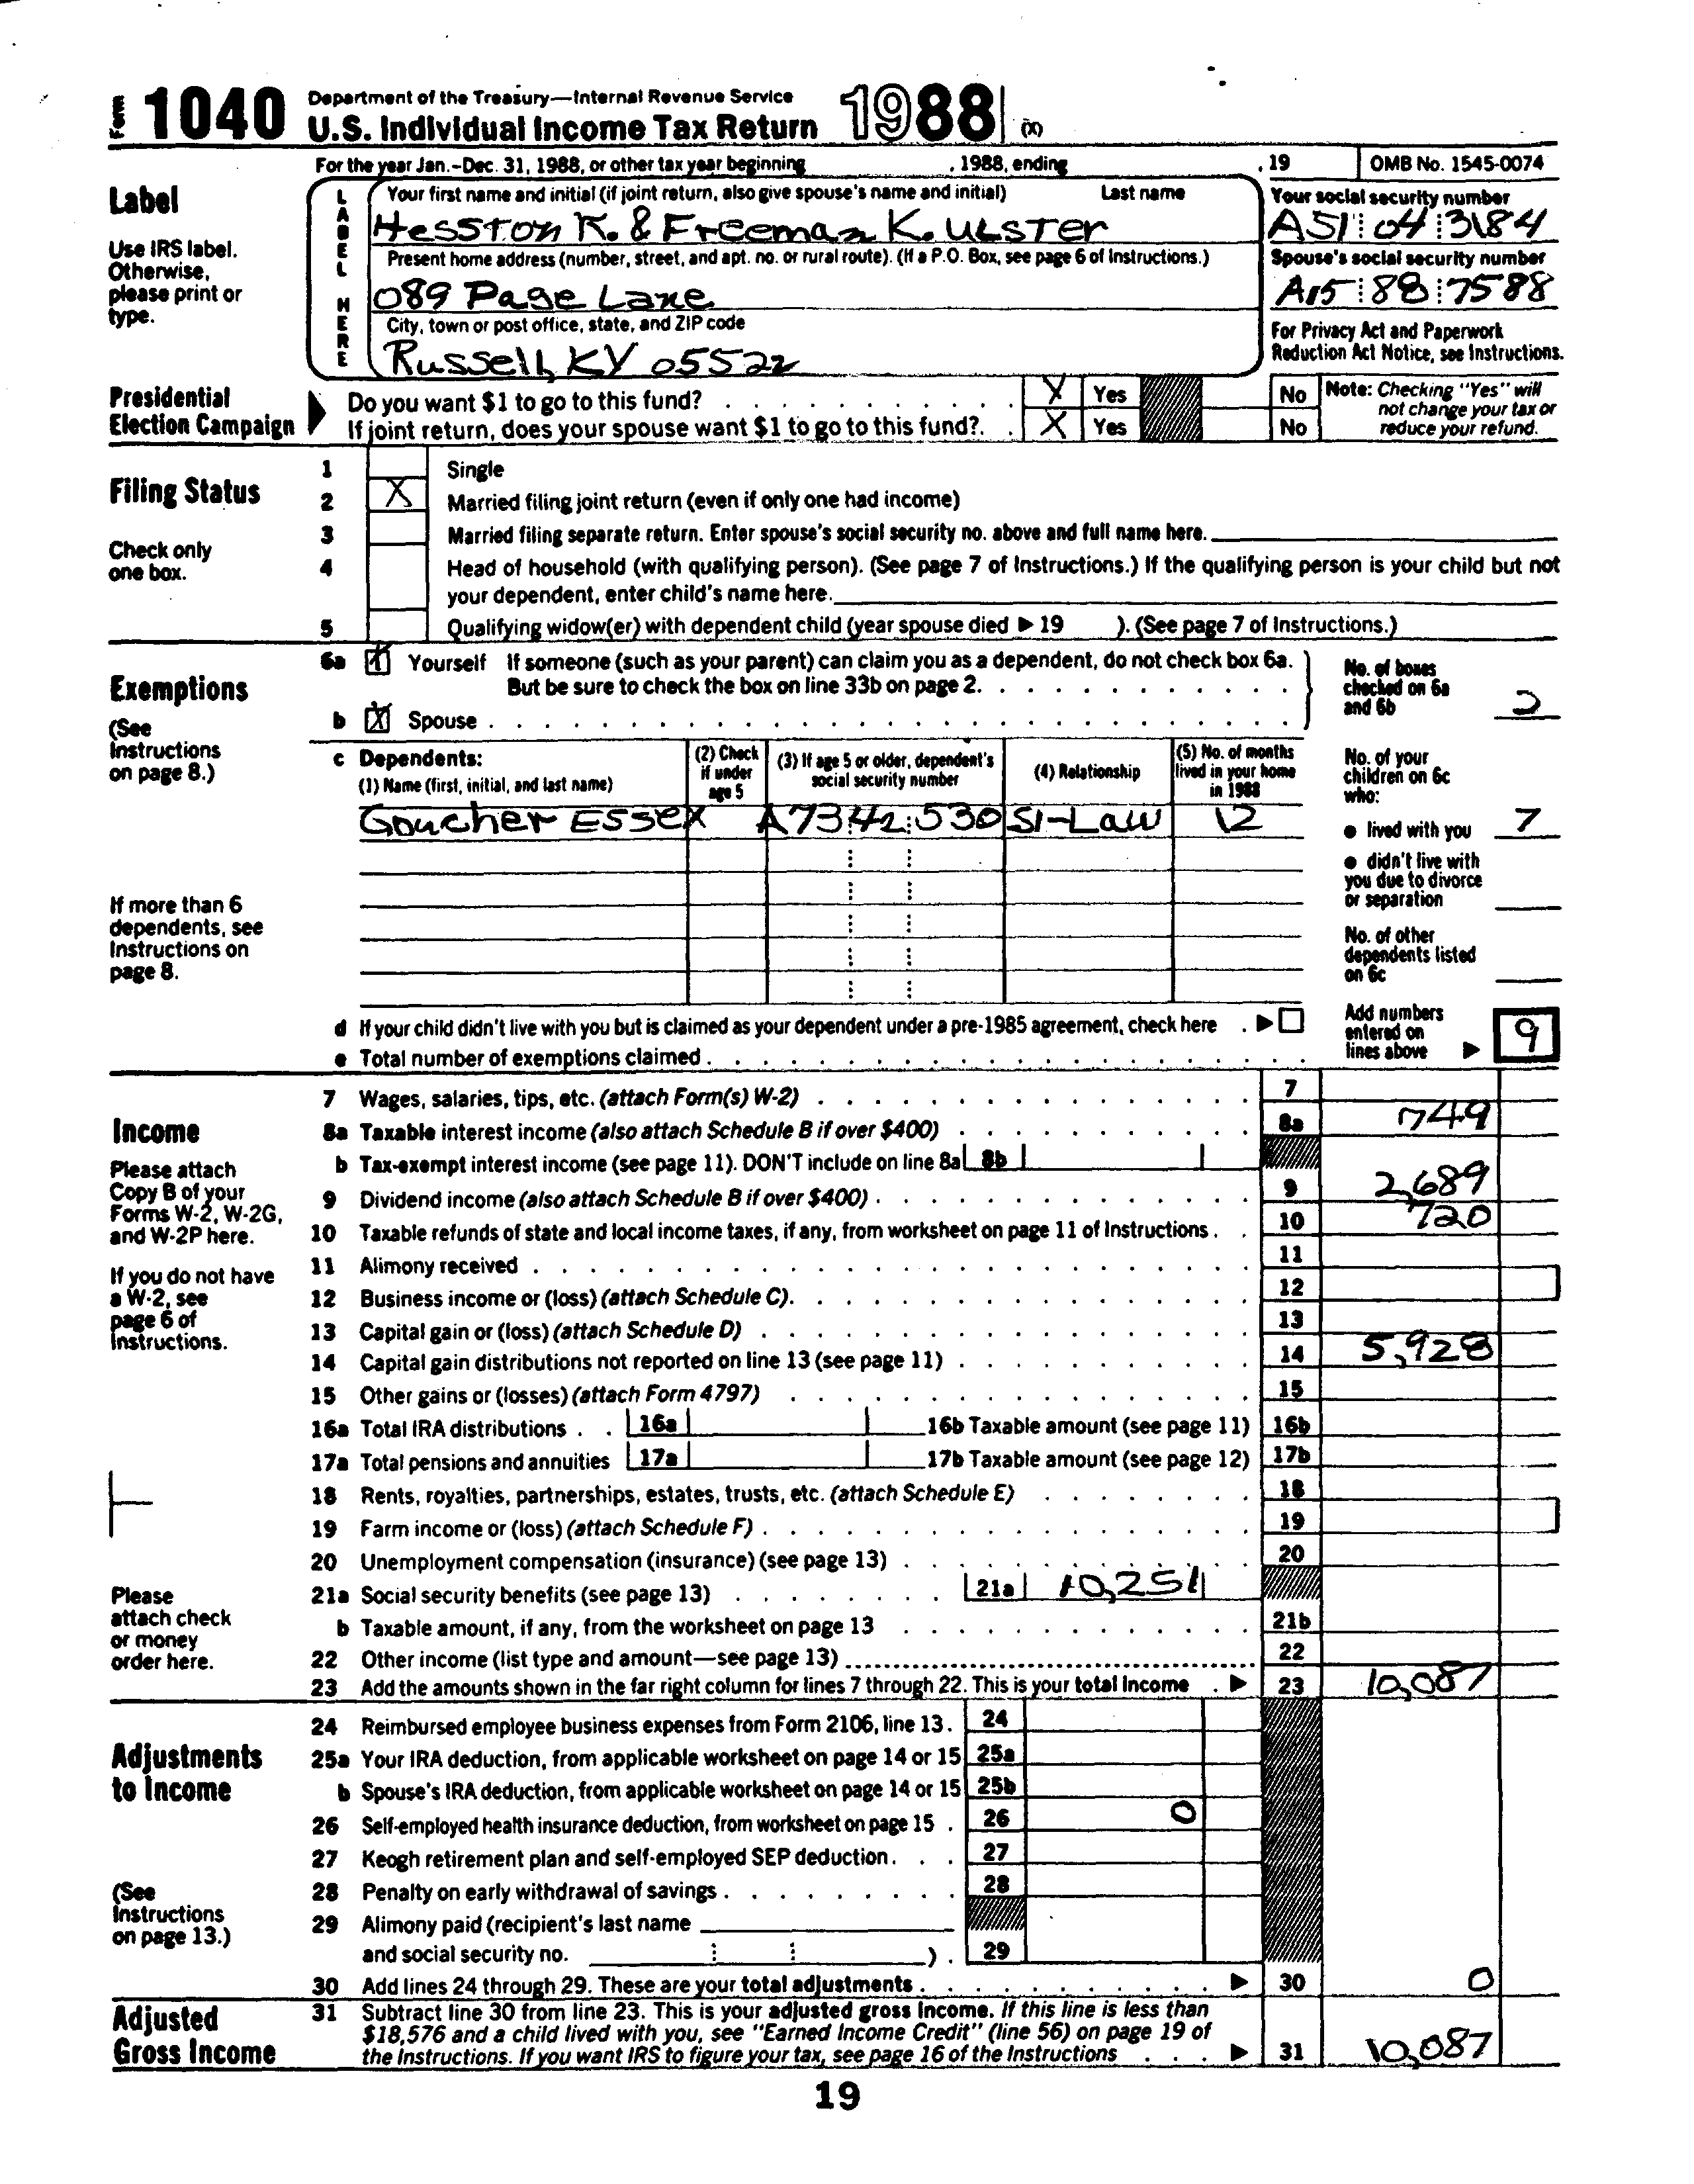 Form 1040 Department of the Treasury—Internal Revenue Service
U.S. Individual Income Tax Return 1988 (X)
For the year Jan.-Dec. 31, 1988, or other tax year beginning , 1988, ending , 19 OMB No. 1545-0074
Label
Use IRS label. Otherwise, please print or type.
LABEL HERE
Your first name and initial (if joint return, also give spouse's name and initial) Last name
Hesston K. & Freeman K. Ulster
Your social security number
A51 04 3184
Present home address (number, street, and apt. no. or rural route). (If a P.O. Box, see page 6 of Instructions.)
089 Page Lane
Spouse's social security number
A15 88 7588
City, town or post office, state, and ZIP code
Russell, KY 05522
For Privacy Act and Paperwork Reduction Act Notice, see Instructions.
Presidential Election Campaign
Do you want $1 to go to this fund? X Yes No
If joint return, does your spouse want $1 to go to this fund? X Yes No
Note: Checking "Yes" will not change your tax or reduce your refund.
Filing Status
Check only one box.
1 Single
2 X Married filing joint return (even if only one had income)
3 Married filing separate return. Enter spouse's social security no. above and full name here.
4 Head of household (with qualifying person). (See page 7 of Instructions.) If the qualifying person is your child but not
your dependent, enter child's name here.
5 Qualifying widow(er) with dependent child (year spouse died ▶ 19 ). (See page 7 of Instructions.)
Exemptions
(See Instructions on page 8.)
6a X Yourself If someone (such as your parent) can claim you as a dependent, do not check box 6a.
But be sure to check the box on line 33b on page 2.
b X Spouse
No. of boxes checked on 6a and 6b 2
c Dependents:
(1) Name (first, initial, and last name)
(2) Check if under age 5
(3) If age 5 or older, dependent's social security number
(4) Relationship
(5) No. of months lived in your home in 1988
Goucher Essex A73 42 530 SI-Law 12
No. of your children on 6c who:
● lived with you 7
● didn't live with you due to divorce or separation
No. of other dependents listed on 6c
If more than 6 dependents, see Instructions on page 8.
d If your child didn't live with you but is claimed as your dependent under a pre-1985 agreement, check here ▶
e Total number of exemptions claimed
Add numbers entered on lines above ▶ 9
Income
Please attach Copy B of your Forms W-2, W-2G, and W-2P here.
If you do not have a W-2, see page 6 of Instructions.
Please attach check or money order here.
7 Wages, salaries, tips, etc. (attach Form(s) W-2) 7
8a Taxable interest income (also attach Schedule B if over $400) 8a 749
b Tax-exempt interest income (see page 11). DON'T include on line 8a 8b
9 Dividend income (also attach Schedule B if over $400) 9 2,689
10 Taxable refunds of state and local income taxes, if any, from worksheet on page 11 of Instructions 10 720
11 Alimony received 11
12 Business income or (loss) (attach Schedule C) 12
13 Capital gain or (loss) (attach Schedule D) 13
14 Capital gain distributions not reported on line 13 (see page 11) 14 5,928
15 Other gains or (losses) (attach Form 4797) 15
16a Total IRA distributions 16a 16b Taxable amount (see page 11) 16b
17a Total pensions and annuities 17a 17b Taxable amount (see page 12) 17b
18 Rents, royalties, partnerships, estates, trusts, etc. (attach Schedule E) 18
19 Farm income or (loss) (attach Schedule F) 19
20 Unemployment compensation (insurance) (see page 13) 20
21a Social security benefits (see page 13) 21a 10,251
b Taxable amount, if any, from the worksheet on page 13 21b
22 Other income (list type and amount—see page 13) 22
23 Add the amounts shown in the far right column for lines 7 through 22. This is your total income ▶ 23 10,087
Adjustments to Income
(See Instructions on page 13.)
24 Reimbursed employee business expenses from Form 2106, line 13. 24
25a Your IRA deduction, from applicable worksheet on page 14 or 15 25a
b Spouse's IRA deduction, from applicable worksheet on page 14 or 15 25b
26 Self-employed health insurance deduction, from worksheet on page 15 26 0
27 Keogh retirement plan and self-employed SEP deduction 27
28 Penalty on early withdrawal of savings 28
29 Alimony paid (recipient's last name
and social security no. ) 29
30 Add lines 24 through 29. These are your total adjustments ▶ 30 0
Adjusted Gross Income
31 Subtract line 30 from line 23. This is your adjusted gross income. If this line is less than
$18,576 and a child lived with you, see "Earned Income Credit" (line 56) on page 19 of
the Instructions. If you want IRS to figure your tax, see page 16 of the Instructions ▶ 31 10,087
19